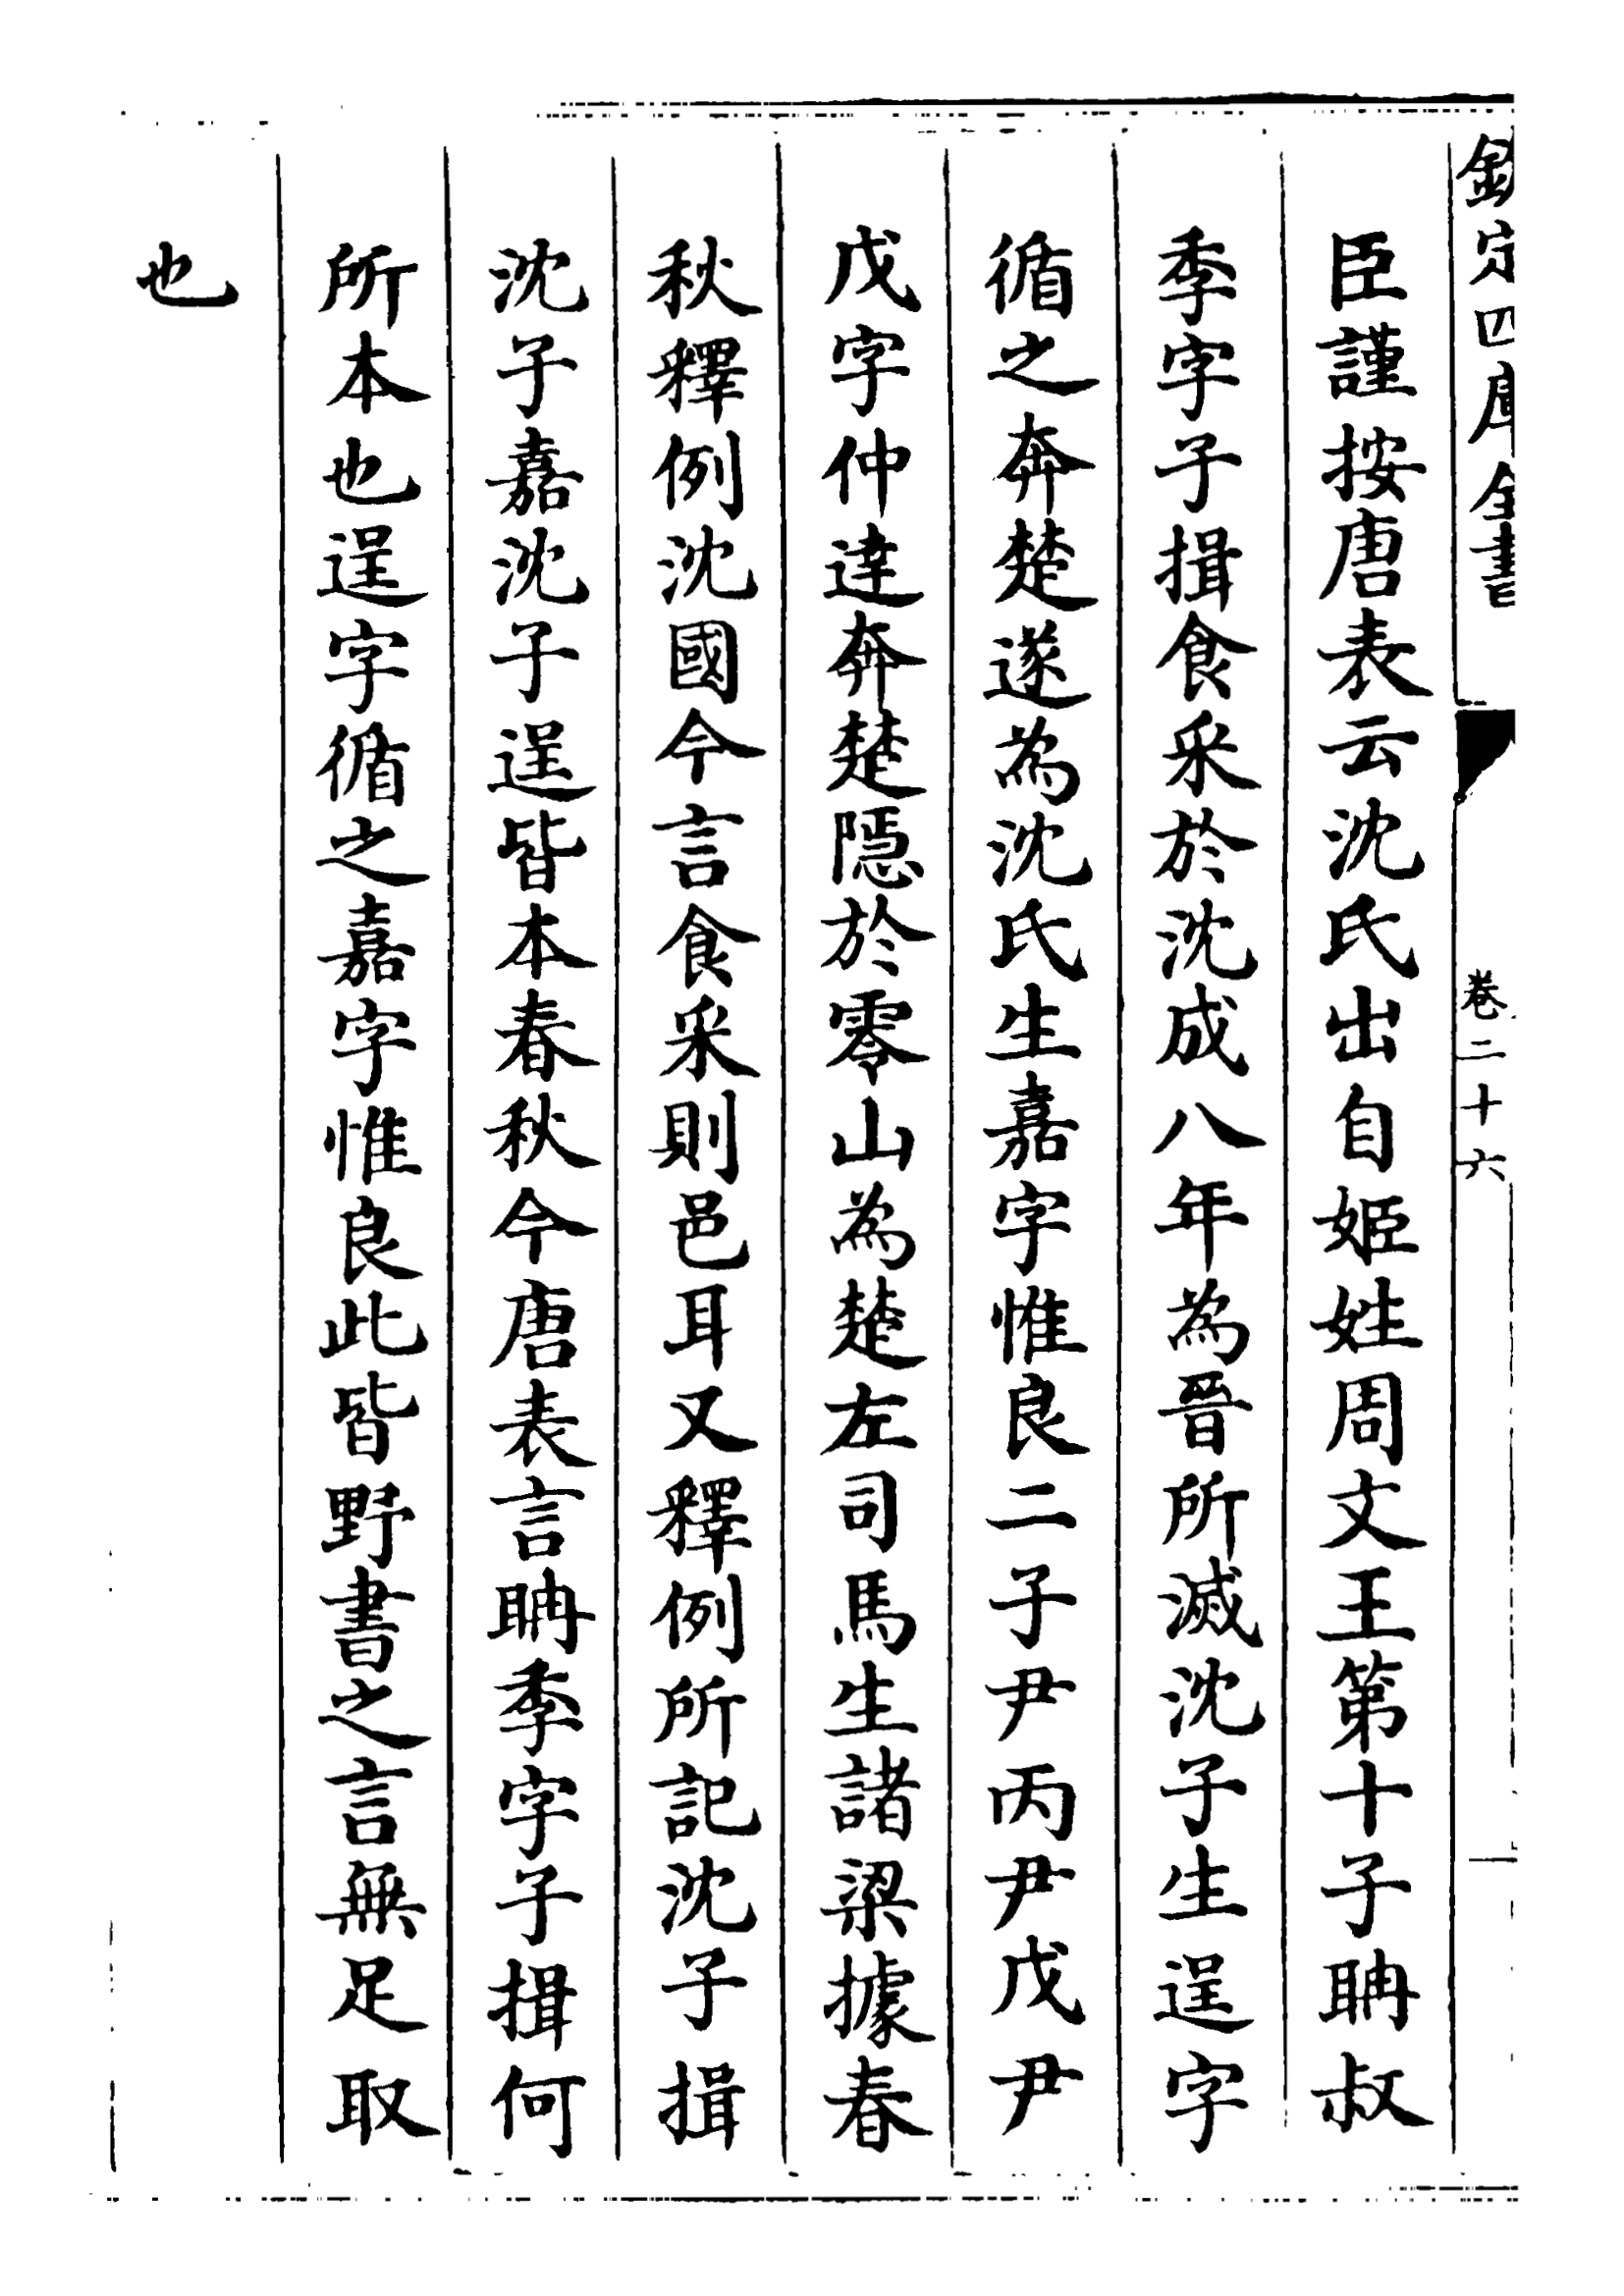 欽定四庫全書
卷二十六
一
臣謹按唐表云沈氏出自姬姓周文王第十子聃叔
季字子揖食采於沈成八年為晉所滅沈子生逞字
循之奔楚遂為沈氏生嘉字惟良二子尹丙尹戊尹
戊字仲達奔楚隱於零山為楚左司馬生諸梁據春
秋釋例沈國今言食采則邑耳又釋例所記沈子揖
沈子嘉沈子逞皆本春秋今唐表言聃季字子揖何
所本也逞字循之嘉字惟良此皆野書之言無足取
也